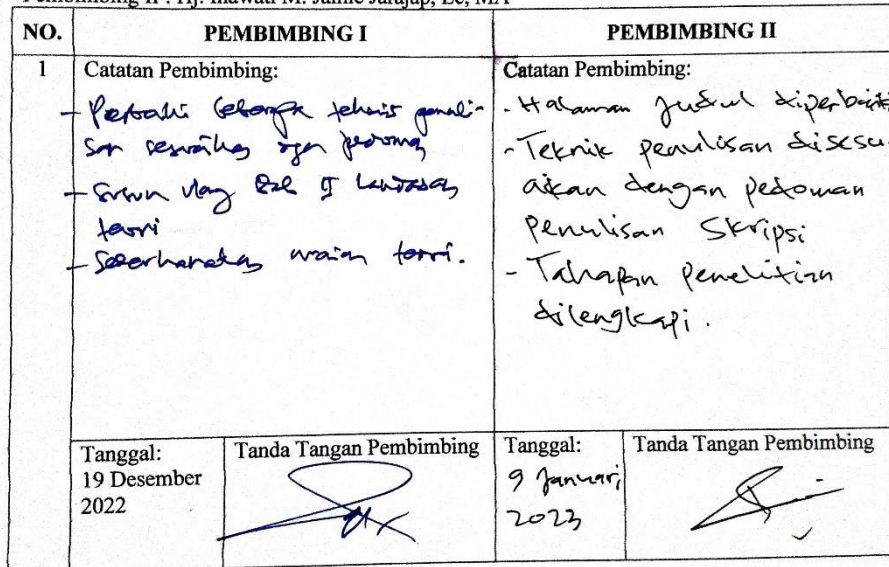 Pembimbing II : Hj. Inawati M. Jainie Jarajap, Lc, MA
NO.
PEMBIMBING I
PEMBIMBING II
1
Catatan Pembimbing:
- Perbaiki beberapa teknis penuli-
san sesuaikan dgn pedoman
- Susun ulang Bab II Landasan
teori
- Sederhanakan uraian teori.
Catatan Pembimbing:
- Halaman Judul diperbaiki
- Teknik penulisan disesu-
aikan dengan pedoman
Penulisan Skripsi
- Tahapan Penelitian
dilengkapi.
Tanggal:
19 Desember
2022
Tanda Tangan Pembimbing
Tanggal:
9 Januari
2023
Tanda Tangan Pembimbing